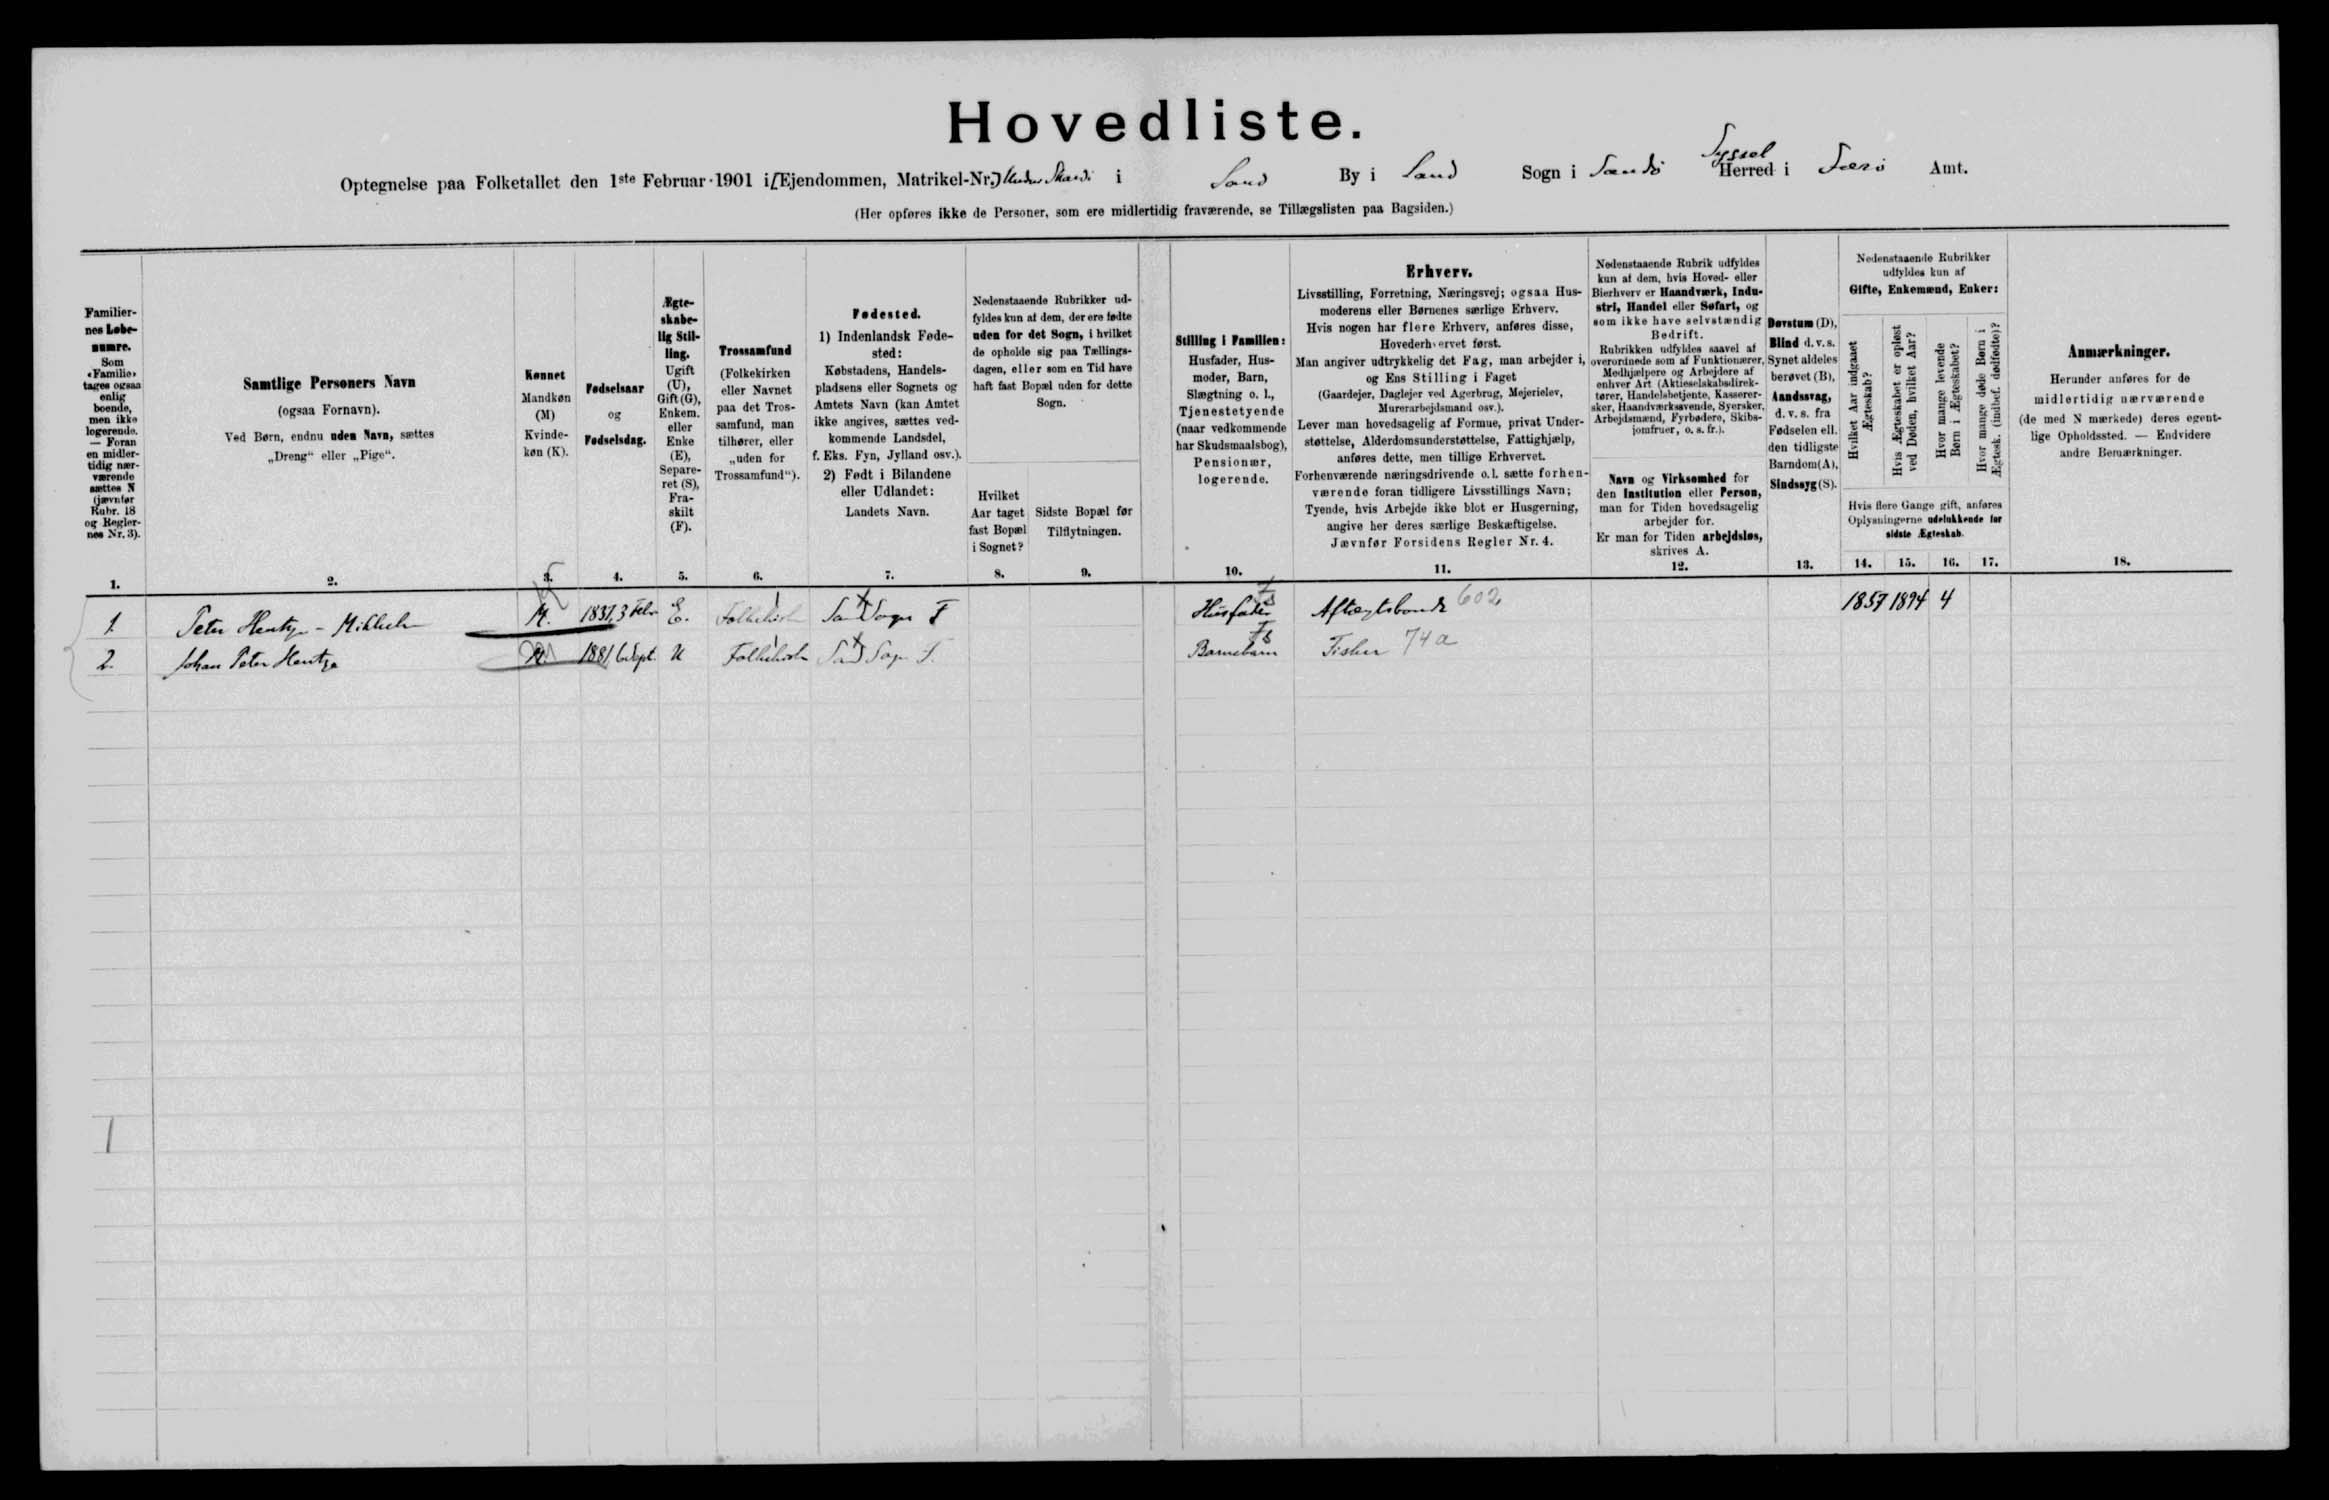 Hovedliste.
Optegnelse paa Folketallet den 1ste Februar 1901 i [Ejendommen, Matrikel-Nr.] i Sand By i Sand Sogn i Sandö Syssel Herred i Færø Amt.
(Her opføres ikke de Personer, som ere midlertidig fraværende, se Tillægslisten paa Bagsiden.)
Familier-
nes Løbe-
numre.
Som
«Familie»
tages ogsaa
enlig
boende,
men ikke
logerende.
— Foran
en midler-
tidig nær-
værende
sættes N
(jævnfør
Rubr. 18
og Regler-
nes Nr. 3).
Samtlige Personers Navn
(ogsaa Fornavn).
Ved Børn, endnu uden Navn, sættes
„Dreng“ eller „Pige“.
Kønnet
Mandkøn
(M)
Kvinde-
køn (K).
Fødselsaar
og
Fødselsdag.
Ægte-
skabe-
lig Stil-
ling.
Ugift
(U),
Gift (G),
Enkem.
eller
Enke
(E),
Separe-
ret (S),
Fra-
skilt
(F).
Trossamfund
(Folkekirken
eller Navnet
paa det Tros-
samfund, man
tilhører, eller
„uden for
Trossamfund“).
Fødested.
1) Indenlandsk Føde-
sted:
Købstadens, Handels-
pladsens eller Sognets og
Amtets Navn (kan Amtet
ikke angives, sættes ved-
kommende Landsdel,
f. Eks. Fyn, Jylland osv.).
2) Født i Bilandene
eller Udlandet:
Landets Navn.
Nedenstaaende Rubrikker ud-
fyldes kun af dem, der ere fødte
uden for det Sogn, i hvilket
de opholde sig paa Tællings-
dagen, eller som en Tid have
haft fast Bopæl uden for dette
Sogn.
Hvilket
Aar taget
fast Bopæl
i Sognet?
Sidste Bopæl før
Tilflytningen.
Stilling i Familien:
Husfader, Hus-
moder, Barn,
Slægtning o. l.,
Tjenestetyende
(naar vedkommende
har Skudsmaalsbog),
Pensionær,
logerende.
Erhverv.
Livsstilling, Forretning, Næringsvej; ogsaa Hus-
moderens eller Børnenes særlige Erhverv.
Hvis nogen har flere Erhverv, anføres disse,
Hovederhvervet først.
Man angiver udtrykkelig det Fag, man arbejder i,
og Ens Stilling i Faget
(Gaardejer, Daglejer ved Agerbrug, Mejerielev,
Murerarbejdsmand osv.).
Lever man hovedsagelig af Formue, privat Under-
støttelse, Alderdomsunderstøttelse, Fattighjælp,
anføres dette, men tillige Erhvervet.
Forhenværende næringsdrivende o. l. sætte forhen-
værende foran tidligere Livsstillings Navn;
Tyende, hvis Arbejde ikke blot er Husgerning,
angive her deres særlige Beskæftigelse.
Jævnfør Forsidens Regler Nr. 4.
Nedenstaaende Rubrik udfyldes
kun af dem, hvis Hoved- eller
Bierhverv er Haandværk, Indu-
stri, Handel eller Søfart, og
som ikke have selvstændig
Bedrift.
Rubrikken udfyldes saavel af
overordnede som af Funktionærer,
Medhjælpere og Arbejdere af
enhver Art (Aktieselskabsdirek-
tører, Handelsbetjente, Kasserer-
sker, Haandværksvende, Syersker,
Arbejdsmænd, Fyrbødere, Skibs-
jomfruer, o. s. fr.).
Navn og Virksomhed for
den Institution eller Person,
man for Tiden hovedsagelig
arbejder for.
Er man for Tiden arbejdsløs,
skrives A.
Døvstum (D),
Blind d. v. s.
Synet aldeles
berøvet (B),
Aandssvag,
d. v. s. fra
Fødselen ell.
den tidligste
Barndom (A),
Sindssyg (S).
Nedenstaaende Rubrikker
udfyldes kun af
Gifte, Enkemænd, Enker:
Hvilket Aar indgaaet
Ægteskab?
Hvis Ægteskabet er opløst
ved Døden, hvilket Aar?
Hvor mange levende
Børn i Ægteskabet?
Hvor mange døde Børn i
Ægtesk. (indbef. dødfødte)?
Hvis flere Gange gift, anføres
Oplysningerne udelukkende for
sidste Ægteskab.
Anmærkninger.
Herunder anføres for de
midlertidig nærværende
(de med N mærkede) deres egent-
lige Opholdssted. — Endvidere
andre Bemærkninger.
1. 2. 3. 4. 5. 6. 7. 8. 9. 10. 11. 12. 13. 14. 15. 16. 17. 18.
1. Peter Hentze - M. 1837, 3 Febr E. Folkekirken Sand Sogn F Husfader Aftægtsbonde 602 1857 1894 4
2. Johan Peter Hentze M. 1881 6 Sept. U Folkekirken Sand Sogn F. Barnebarn Fisker 74a